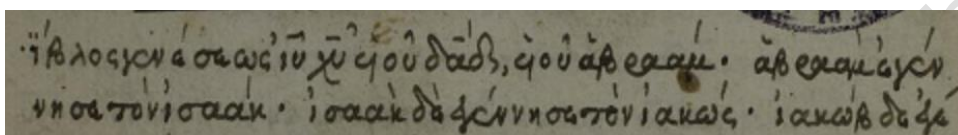 ἵβλος γενέσεως ἰῦ χῦ ὑιοῦ δᾱδ, ὑιοῦ ἀβραάμ· ἀβραὰμ ἐγέν
νησε τὸν ἰσαάκ· ἰσαὰκ δὲ ἐγέννησε τὸν ἰακώβ· ἰακὼβ δὲ ἐγέ